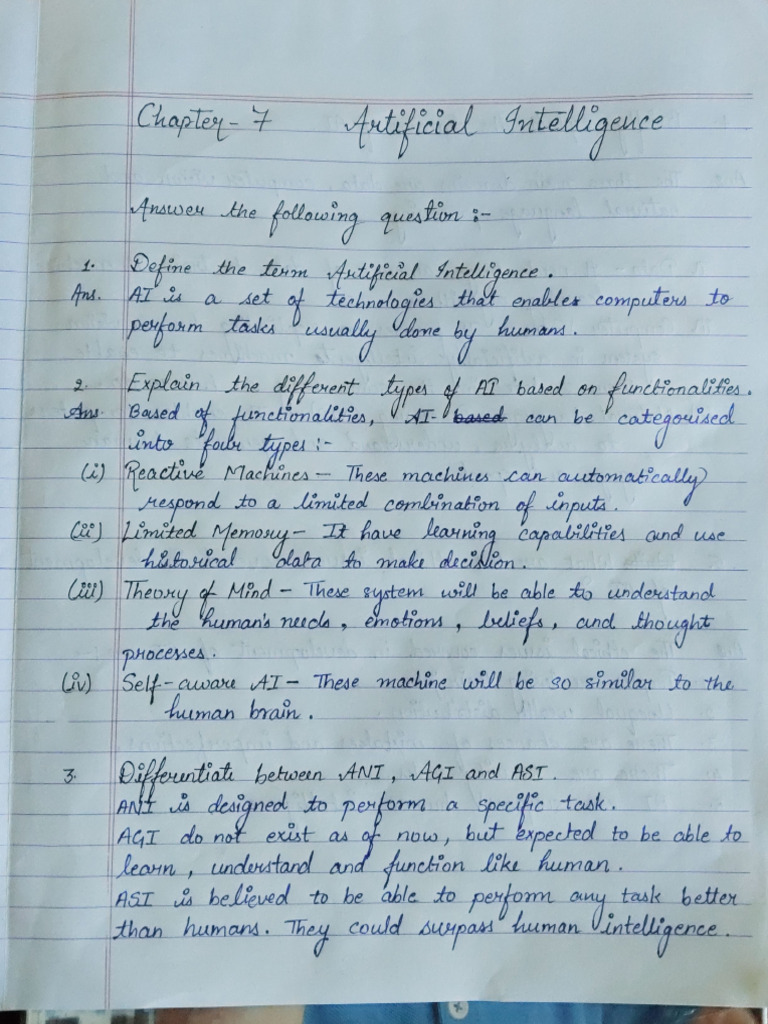 Chapter - 7 Artificial Intelligence
Answer the following question :-
1. Define the term Artificial Intelligence.
Ans. AI is a set of technologies that enables computers to
perform tasks usually done by humans.
2. Explain the different types of AI based on functionalities.
Ans. Based of functionalities, AI based can be categorised
into four types :-
(i) Reactive Machines - These machines can automatically
respond to a limited combination of inputs.
(ii) Limited Memory - It have learning capabilities and use
historical data to make decision.
(iii) Theory of Mind - These system will be able to understand
the human's needs, emotions, beliefs, and thought
processes.
(iv) Self-aware AI - These machine will be so similar to the
human brain.
3. Differentiate between ANI, AGI and ASI.
ANI is designed to perform a specific task.
AGI do not exist as of now, but expected to be able to
learn, understand and function like human.
ASI is believed to be able to perform any task better
than humans. They could surpass human intelligence.